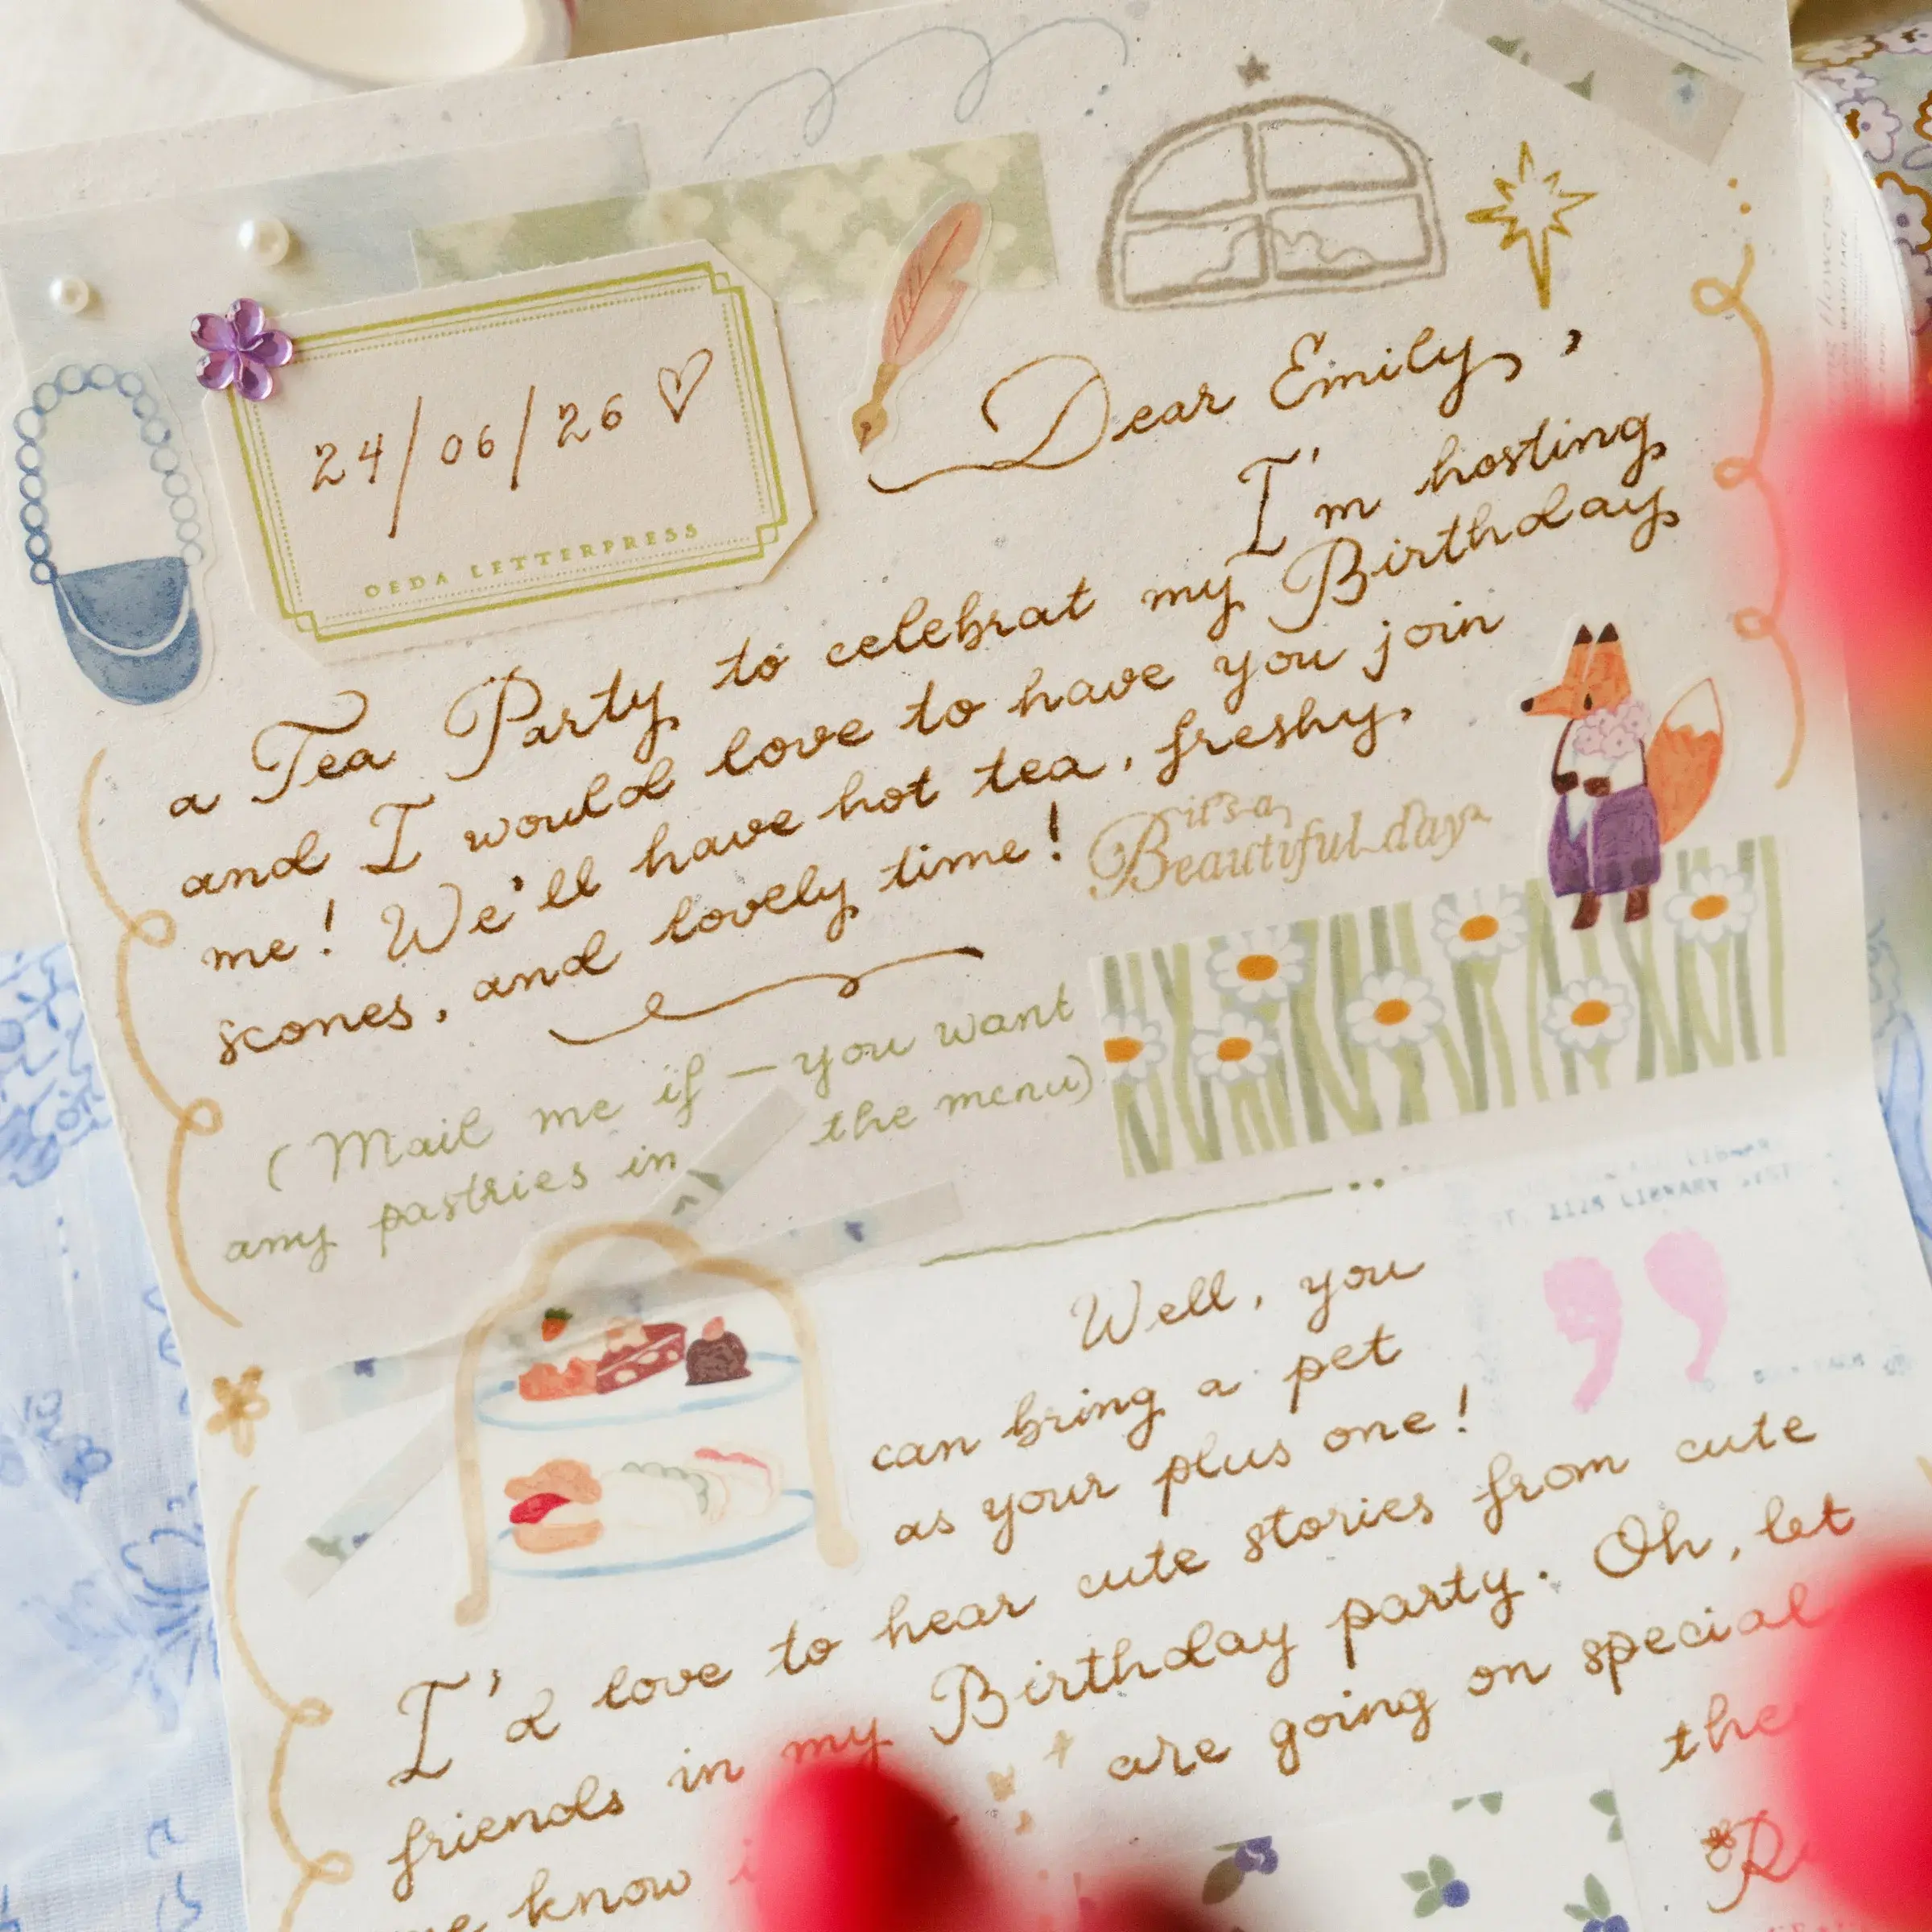 24/06/26 ♡
OEDA LETTERPRESS
Dear Emily,
I'm hosting
a Tea Party to celebrat my Birthday
and I would love to have you join
me! We'll have hot tea, freshy,
scones, and lovely time!
it's a
Beautiful day
(Mail me if – you want
any pastries in the menu)
Well, you
can bring a pet
as your plus one!
I'd love to hear cute stories from cute
friends in my Birthday party. Oh, let
know are going on special
the